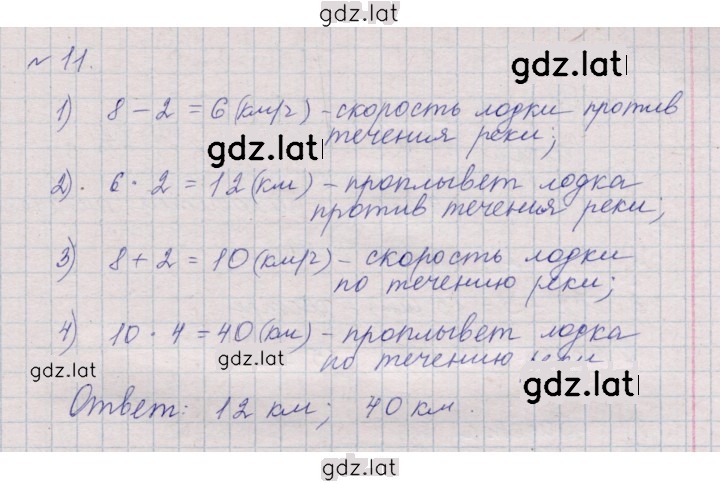 gdz.lat
№ 11.
gdz.lat
1) 8 - 2 = 6 (км/ч) - скорость лодки против
течения реки;
gdz.lat
2). 6 · 2 = 12 (км) - проплывет лодка
против течения реки;
3) 8 + 2 = 10 (км/ч) - скорость лодки
по течению реки;
4) 10 · 4 = 40 (км) - проплывет лодка
по течению
gdz.lat
gdz.lat
gdz.lat
Ответ: 12 км; 40 км.
gdz.lat